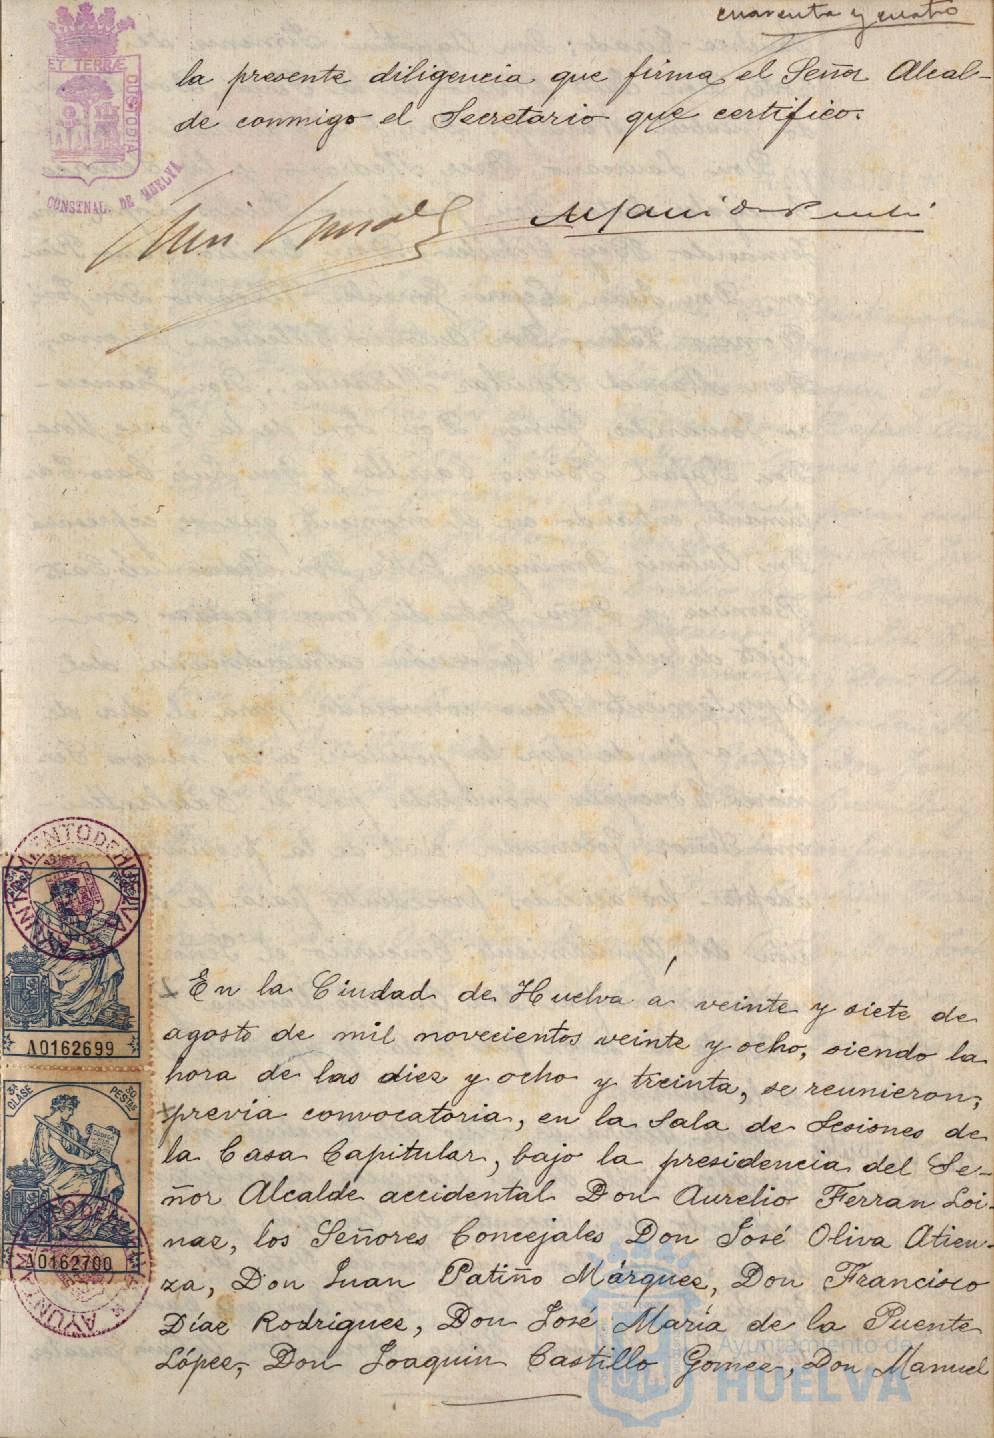 cuarenta y cuatro
ET TERRÆ CUSTODIA
CONSTNAL. DE HUELVA
la presente diligencia que firma el Señor Alcal-
de conmigo el Secretario que certifico.
En la Ciudad de Huelva á veinte y siete de
agosto de mil novecientos veinte y ocho, siendo la
hora de las diez y ocho y treinta, se reunieron,
previa convocatoria, en la Sala de Sesiones de
la Casa Capitular, bajo la presidencia del Se-
ñor Alcalde accidental Don Aurelio Ferran Loi-
naz, los Señores Concejales Don José Oliva Atien-
za, Don Juan Patiño Márquez, Don Francisco
Díaz Rodriguez, Don José María de la Puente
López, Don Joaquin Castillo Gomez, Don Manuel
AYUNTAMIENTO DE HUELVA
A0162699
8ª CLASE
PESETAS
A0162700
AYUNTAMIENTO DE HUELVA
Ayuntamiento de
HUELVA